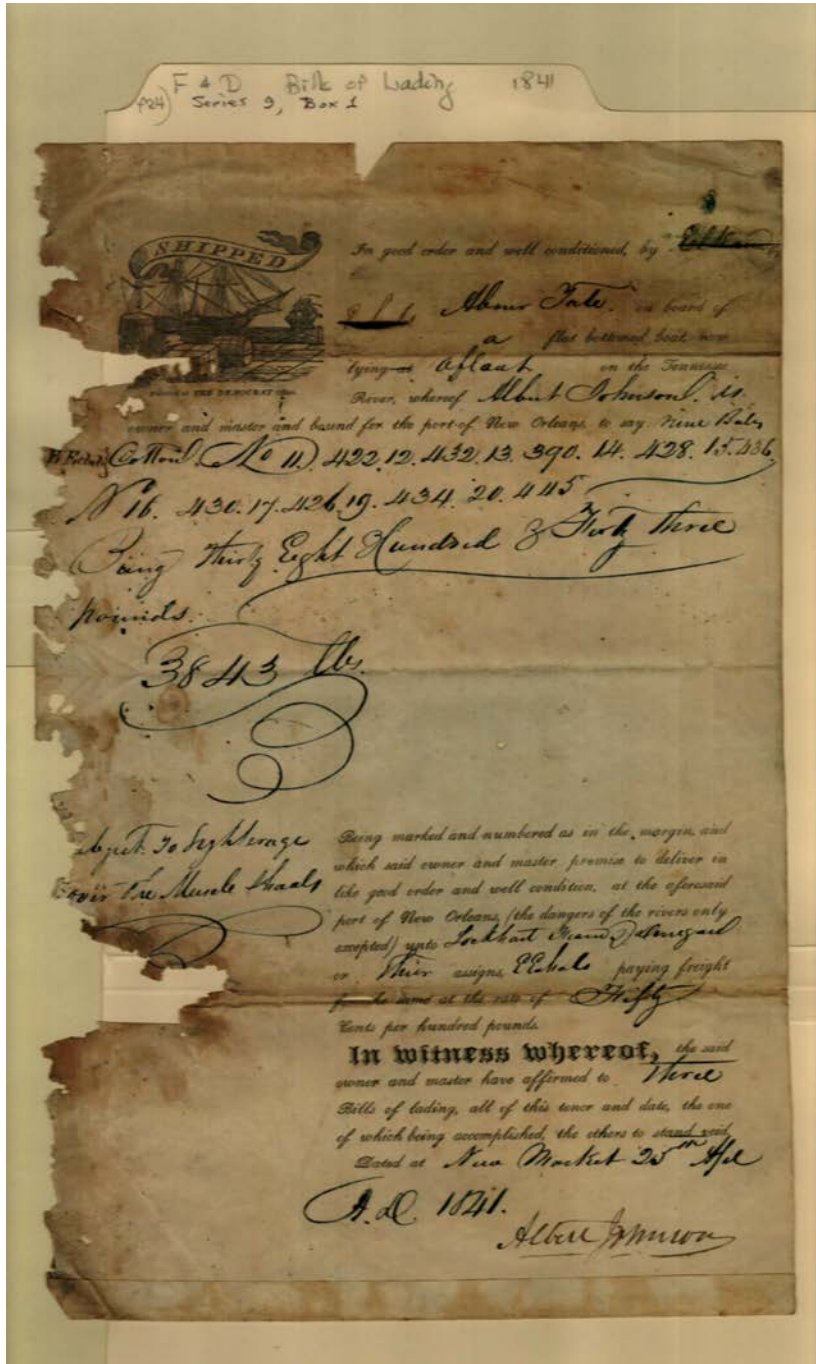 F & D Bills of Lading 1841
P24) Series 9, Box 1
SHIPPED
In good order and well conditioned, by
Abner Tate. on board of
a flat bottomed boat now
lying at afloat on the Tennessee
River, whereof Albert Johnson is
owner and master and bound for the port of New Orleans, to say Nine Bales
Cotton. No 11. 422. 12. 432. 13. 390. 14. 428. 15. 436
No 16. 430. 17. 426. 19. 434. 20. 445
Being Thirty Eight Hundred & Forty three
pounds.
3843 lbs.
to Lighterage
over the Muscle Shoals
Being marked and numbered as in the margin, and
which said owner and master, promise to deliver in
like good order and well condition, at the aforesaid
port of New Orleans, (the dangers of the rivers only
excepted) unto Lockhart
or Their assigns, paying freight
for the same at the rate of Fifty
Cents per hundred pounds.
In witness whereof, the said
owner and master have affirmed to Three
Bills of lading, all of this tenor and date, the one
of which being accomplished, the others to stand void
Dated at New Market 25th
A.D. 1841.
Albert Johnson